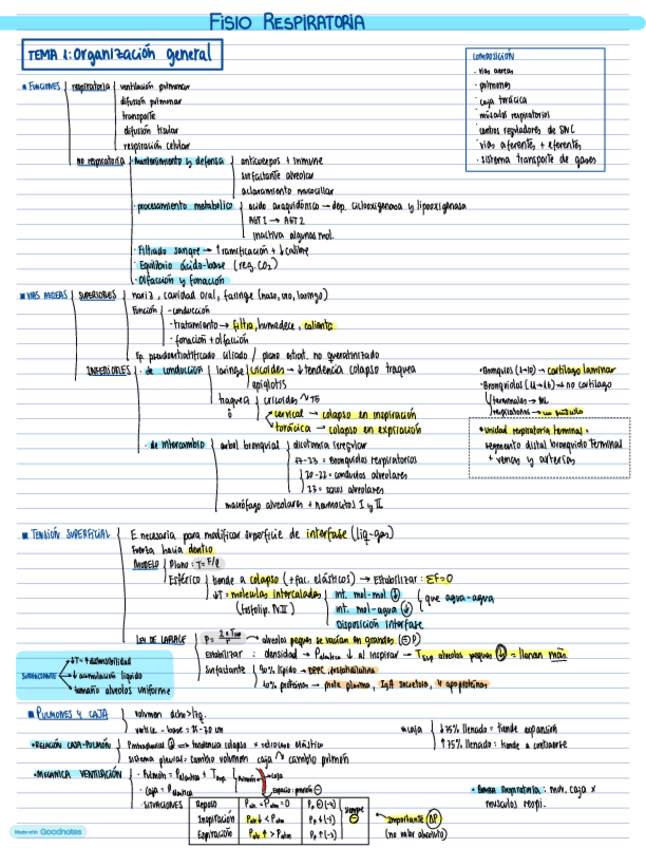 FISIO RESPIRATORIA
TEMA 1: Organización general
COMPOSICIÓN
· vías aéreas
· pulmones
· caja torácica
· músculos respiratorios
· centros reguladores de SNC
· vías aferente, + eferentes
· sistema transporte de gases
FUNCIONES
respiratoria
ventilación pulmonar
difusión pulmonar
transporte
difusión tisular
respiración celular
no respiratoria
· Mantenimiento y defensa
anticuerpos + inmune
surfactante alveolar
aclaramiento mucociliar
· procesamiento metabólico
ácido araquidónico → dep. ciclooxigenasa y lipooxigenasa
AGT1 → AGT2
inactiva algunas mol.
· Filtrado sangre → ↑ ramificación + ↓ calibre
· Equilibrio ácido-base (reg. CO₂)
· Olfacción y fonación
VÍAS AÉREAS
SUPERIORES
nariz, cavidad oral, faringe (naso, oro, laringo)
Función
- conducción
- tratamiento → filtra, humedece, calienta
- fonación + olfacción
Ep. pseudoestratificado ciliado / plano estrat. no queratinizado
INFERIORES
· de conducción
laringe
cricoides → ↓ tendencia colapso tráquea
epiglotis
tráquea
cricoides ~ T5
cervical → colapso en inspiración
torácica → colapso en expiración
· Bronquios (1-10) → cartílago laminar
· Bronquiolos (11-16) → no cartílago
terminales → ML
respiratorios →
· Unidad respiratoria terminal =
segmento distal bronquiolo terminal
+ venas y arterias
· de intercambio
árbol bronquial
dicotomía irregular
17-23 = Bronquiolos respiratorios
20-22 = conductos alveolares
23 = sacos alveolares
macrófago alveolares + neumocitos I y II
TENSIÓN SUPERFICIAL
E necesaria para modificar superficie de interfase (liq-gas)
Fuerza hacia dentro
MODELO
Plano: T = F/l
Esférico
tiende a colapso (+ fac. elásticos) → Estabilizar: ΣF=0
↓T = moléculas intercaladas
(fosfolip. N II)
int. mol-mol ↓
int. mol-agua ↓
que agua-agua
Disposición interfase
LEY DE LAPLACE
alveolos peques se vacían en grandes
Estabilizar: densidad → P ↓ al inspirar → T alveolos peques ↓ = llenan más
Surfactante
90% lípido → DPPC,
10% proteínas → prote plasma, IgA secretora, 4 apoproteínas
SURFACTANTE
↓T = ↑ distensibilidad
↓ acumulación líquido
tamaño alveolos uniforme
PULMONES Y CAJA
volumen dcho > izq.
vértice - base =
· caja
↓ 75% llenado: tiende expansión
↑ 75% llenado: tiende a contraerse
· RELACIÓN CAJA-PULMÓN
tendencia colapso × retroceso elástico
sistema pleural = cambio volumen caja ~ cambio pulmón
· MECÁNICA VENTILACIÓN
· Pulmón = P elástica + T sup.
· Caja = P elástica
Pulmón
Caja
Espacio: presión ⊖
· Bomba Respiratoria: mov. caja ×
músculos respi.
· SITUACIONES
Reposo
Inspiración
Espiración
siempre ⊖
importante ΔP
(no valor absoluto)
Made with Goodnotes